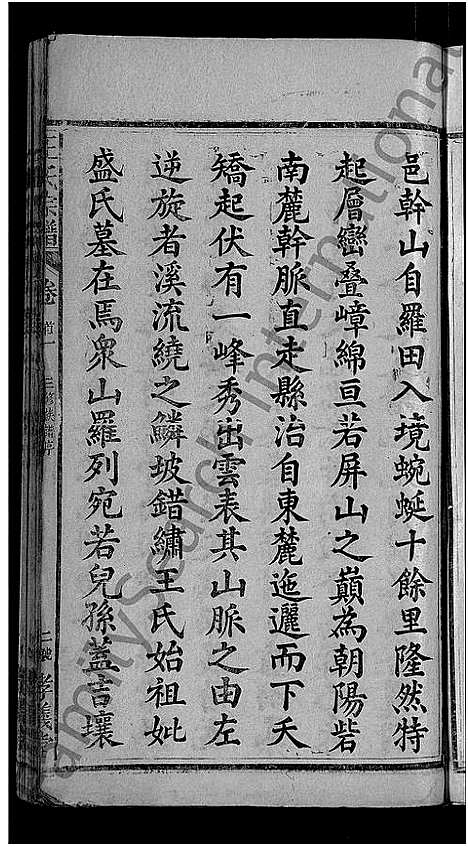 邑幹山自羅田入境蜿蜒十餘里隆然特
起層巒叠嶂綿亘若屏山之巔為朝陽砦
南麓幹脈直走縣治自東麓迤邐而下夭
矯起伏有一峰秀出雲表其山脈之由左
逆旋者溪流繞之鱗坡錯繡王氏始祖妣
盛氏墓在焉衆山羅列宛若兒孫蓋吉壤
王氏宗譜
卷首一
孝義堂
FamilySearch International